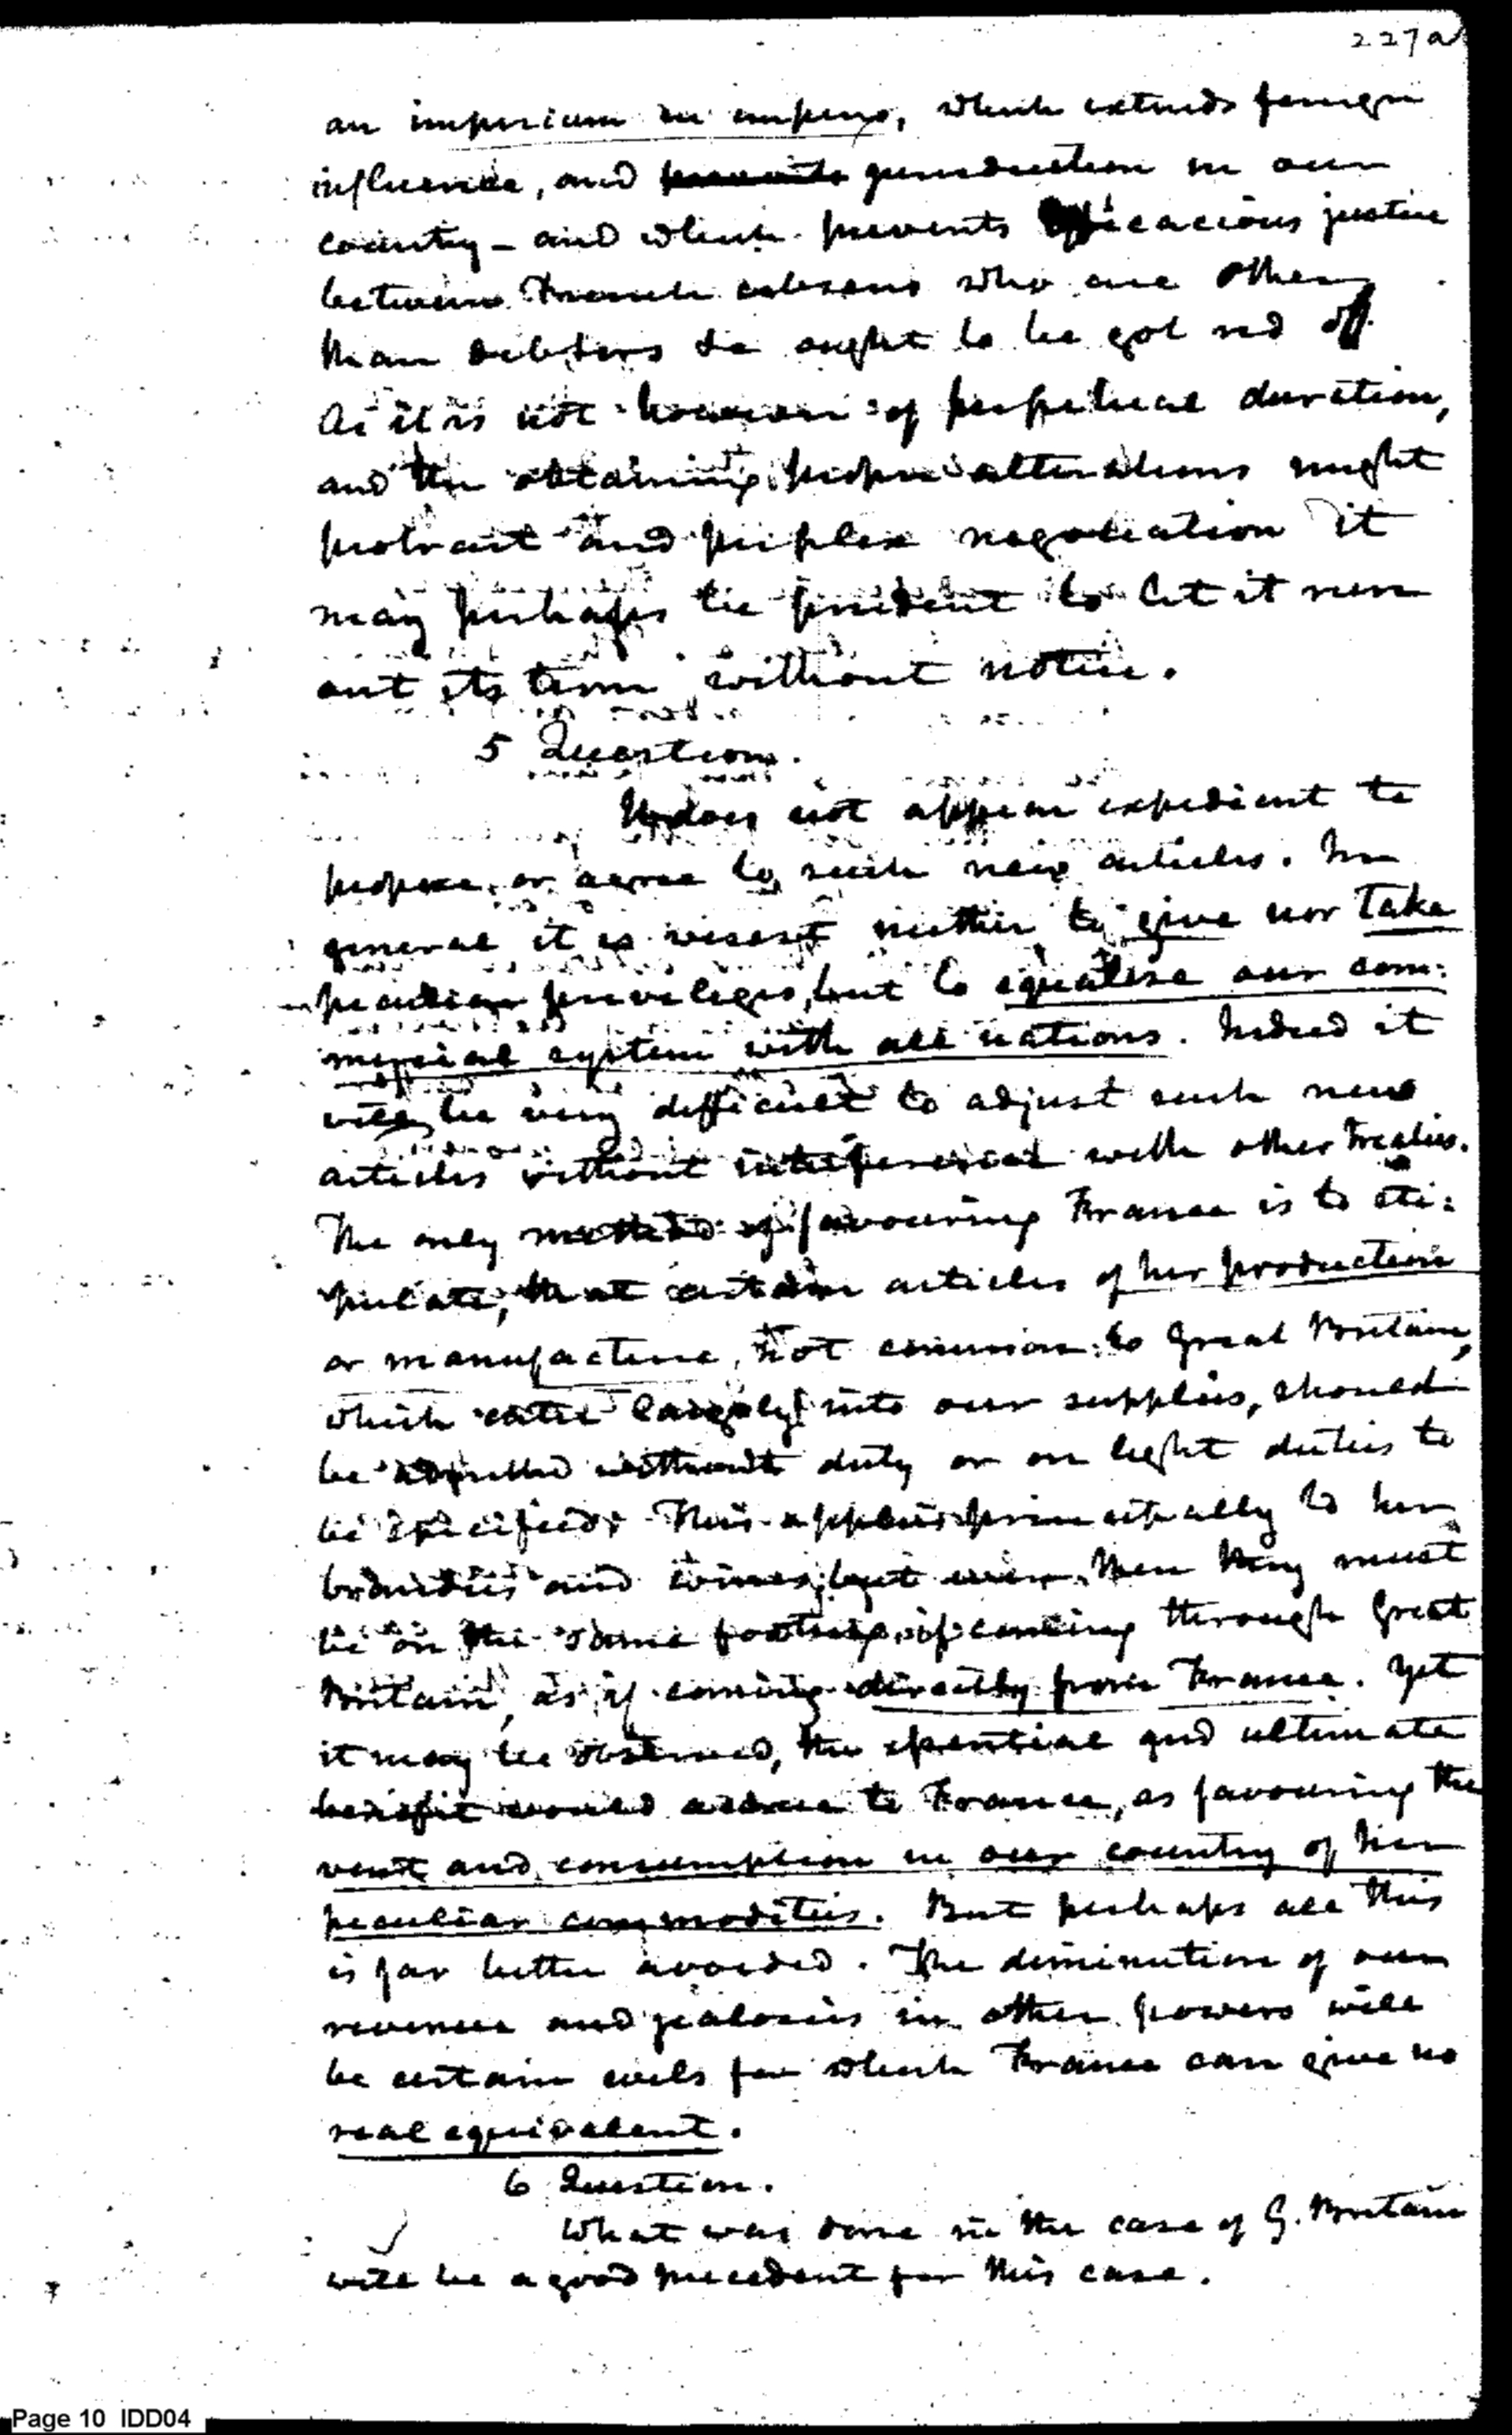 227a
an imperium in imperio, which extends foreign
influence, and jurisdiction in our
country - and which prevents efficacious justice
between French citizens who are other
than debtors &c ought to be got rid off.
As it is not however of perpetual duration,
and the obtaining proper alterations might
protract and perplex negotiation it
may perhaps be prudent to let it run
out its term without notice.
5 Question.
It does not appear expedient to
propose, or agree to such new articles. In
general it is wisest neither to give nor take
peculiar privileges, but to equalise our com:
mercial system with all nations. Indeed it
will be very difficult to adjust such new
articles without interference with other Treaties.
The only method of favouring France is to sti:
pulate, that certain articles of her production
or manufacture, not common to Great Britain,
which enter largely into our supplies, should
be admitted without duty or on light duties to
be specified. This applies principally to her
brandies and wines; but even then they must
be on the same footing, if coming through Great
Britain, as if coming directly from France. Yet
it may be observed, the essential and ultimate
benefit would accrue to France, as favouring the
vent and consumption in our country of her
peculiar commodities. But perhaps all this
is far better avoided. The diminution of our
revenue and jealosies in other powers will
be certain evils for which France can give no
real equivalent.
6 Question.
What was done in the case of G. Britain
will be a good precedent for this case.
Page 10 IDD04